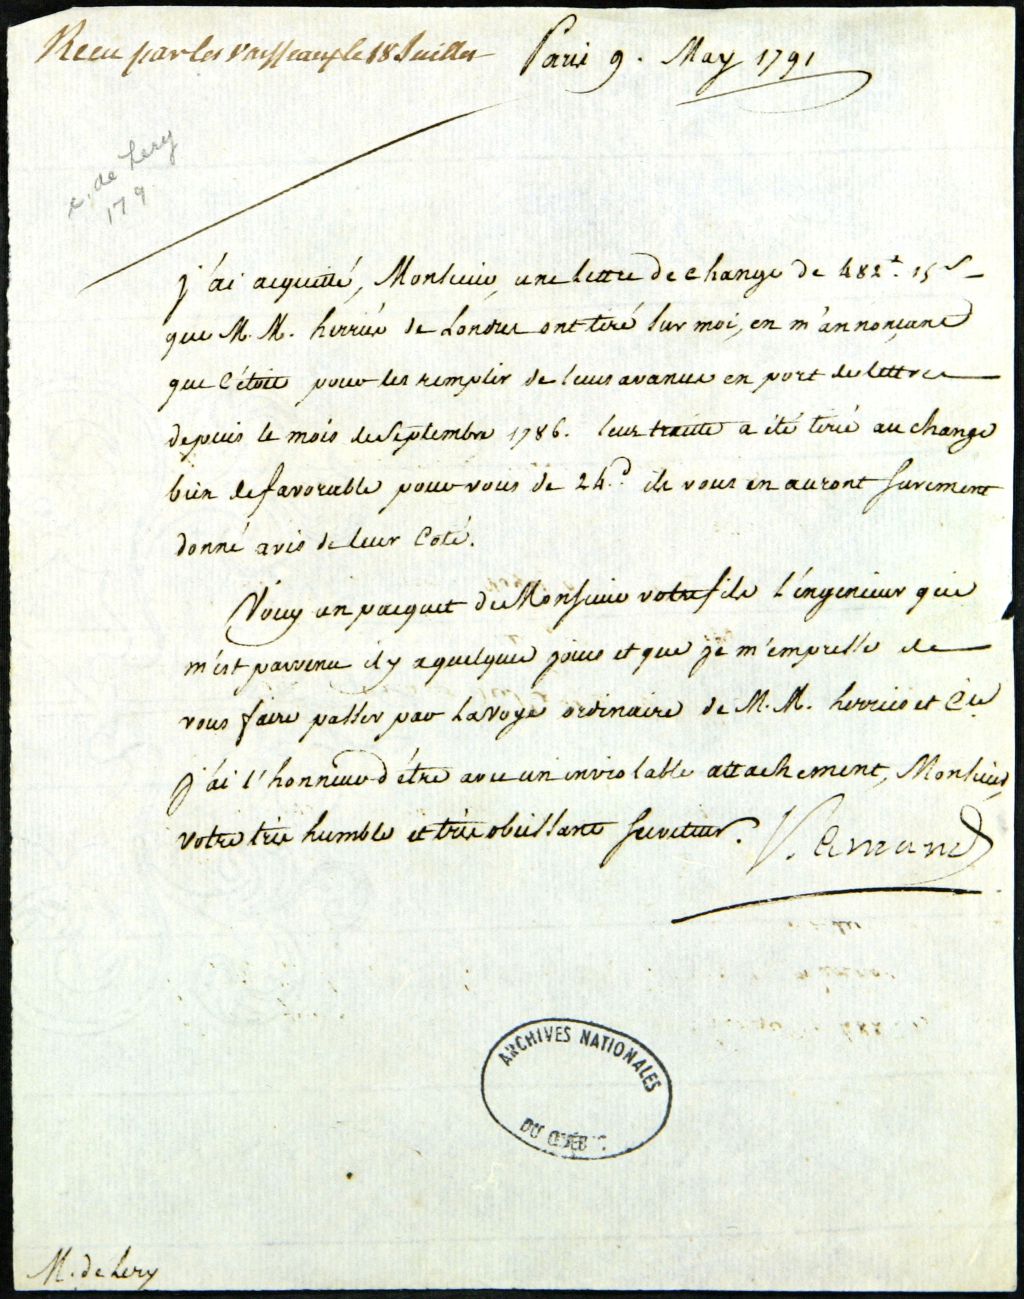 Recu par les Vaisseaux le 18 Juillet
Paris 9. May 1791
de Lery
179
j'ai acquitté, Monsieur, une lettre de change de 482.# 15.s
que M.M. herriés de Londres ont tiré sur moi, en m'annonçant
que C'étoit pour les remplir de leurs avances en port de lettres
depuis le mois de Septembre 1786. leur traitte a été tirée au change
bien defavorable pour vous de 24.d ils vous en auront surement
donné avis de leur Coté.
Voicy un pacquet de Monsieur votre fils l'ingenieur qui
m'est parvenu il y a quelques jours et que je m'empresse de
vous faire passer par la voye ordinaire de M.M. herries et Cie
j'ai l'honneur d'être avec un inviolable attachement, Monsieur,
votre très humble et très obéissant serviteur.
ARCHIVES NATIONALES
DU QUÉBEC
M. de Lery